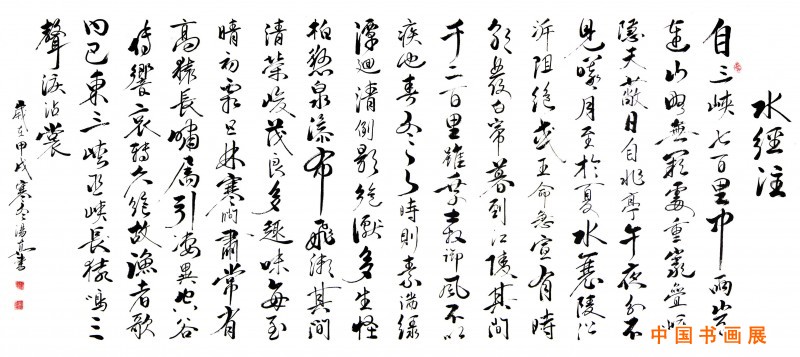 水經注
自三峽七百里中兩岸
連山略無闕處重巖疊嶂
隱天蔽日自非亭午夜分不
見曦月至於夏水襄陵沿
泝阻絕或王命急宣有時
朝發白帝暮到江陵其間
千二百里雖乘奔御風不以
疾也春冬之時則素湍綠
潭迴清倒影絕巘多生怪
柏懸泉瀑布飛漱其間
清榮峻茂良多趣味每至
晴初霜旦林寒澗肅常有
高猿長嘯屬引淒異空谷
傳響哀轉久絕故漁者歌
曰巴東三峽巫峽長猿鳴三
聲淚沾裳
甲戌寒冬
中国书画展